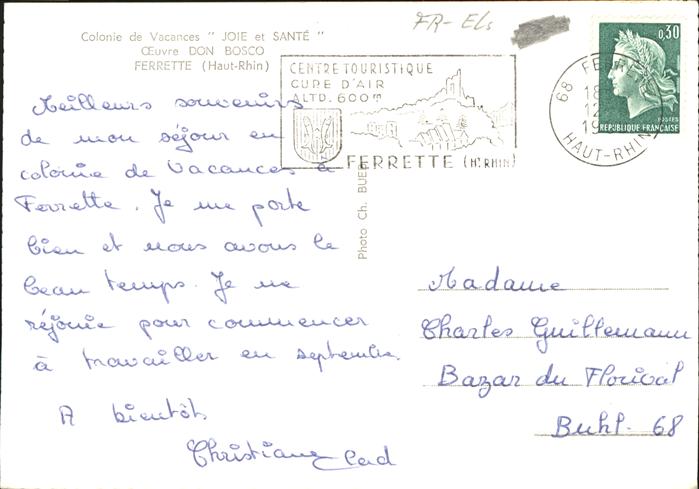 Colonie de Vacances " JOIE et SANTÉ "
Œuvre DON BOSCO
FERRETTE (Haut-Rhin)
FR-Els
0,30
POSTES
REPUBLIQUE FRANÇAISE
CENTRE TOURISTIQUE
CURE D'AIR
ALTD. 600m
FERRETTE (Ht RHIN)
68 FERR
18
12
19
HAUT-RHIN
Meilleurs souvenirs
de mon séjour en
colonie de vacances à
Ferrette. Je me porte
bien et nous avons le
beau temps. Je me
réjouie pour commencer
à travailler en septembre.
A bientôt
Christiane
Photo Ch. BUEB
Madame
Charles Guillemann
Bazar du Florival
Buhl. 68